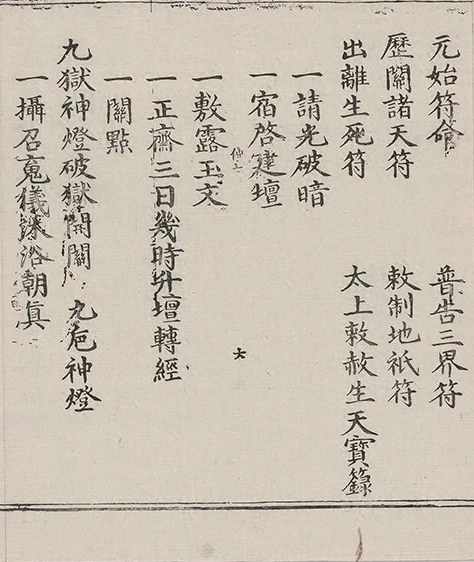 元始符命　普告三界符
歷關諸天符　敕制地祇符
出離生死符　太上敕赦生天寶籙
一請光破暗
一宿啓建壇
一敷露玉文
一正齋三日幾時升壇轉經
一關點
九獄神燈破獄開關　九巵神燈
一攝召䰟儀鍊浴朝眞